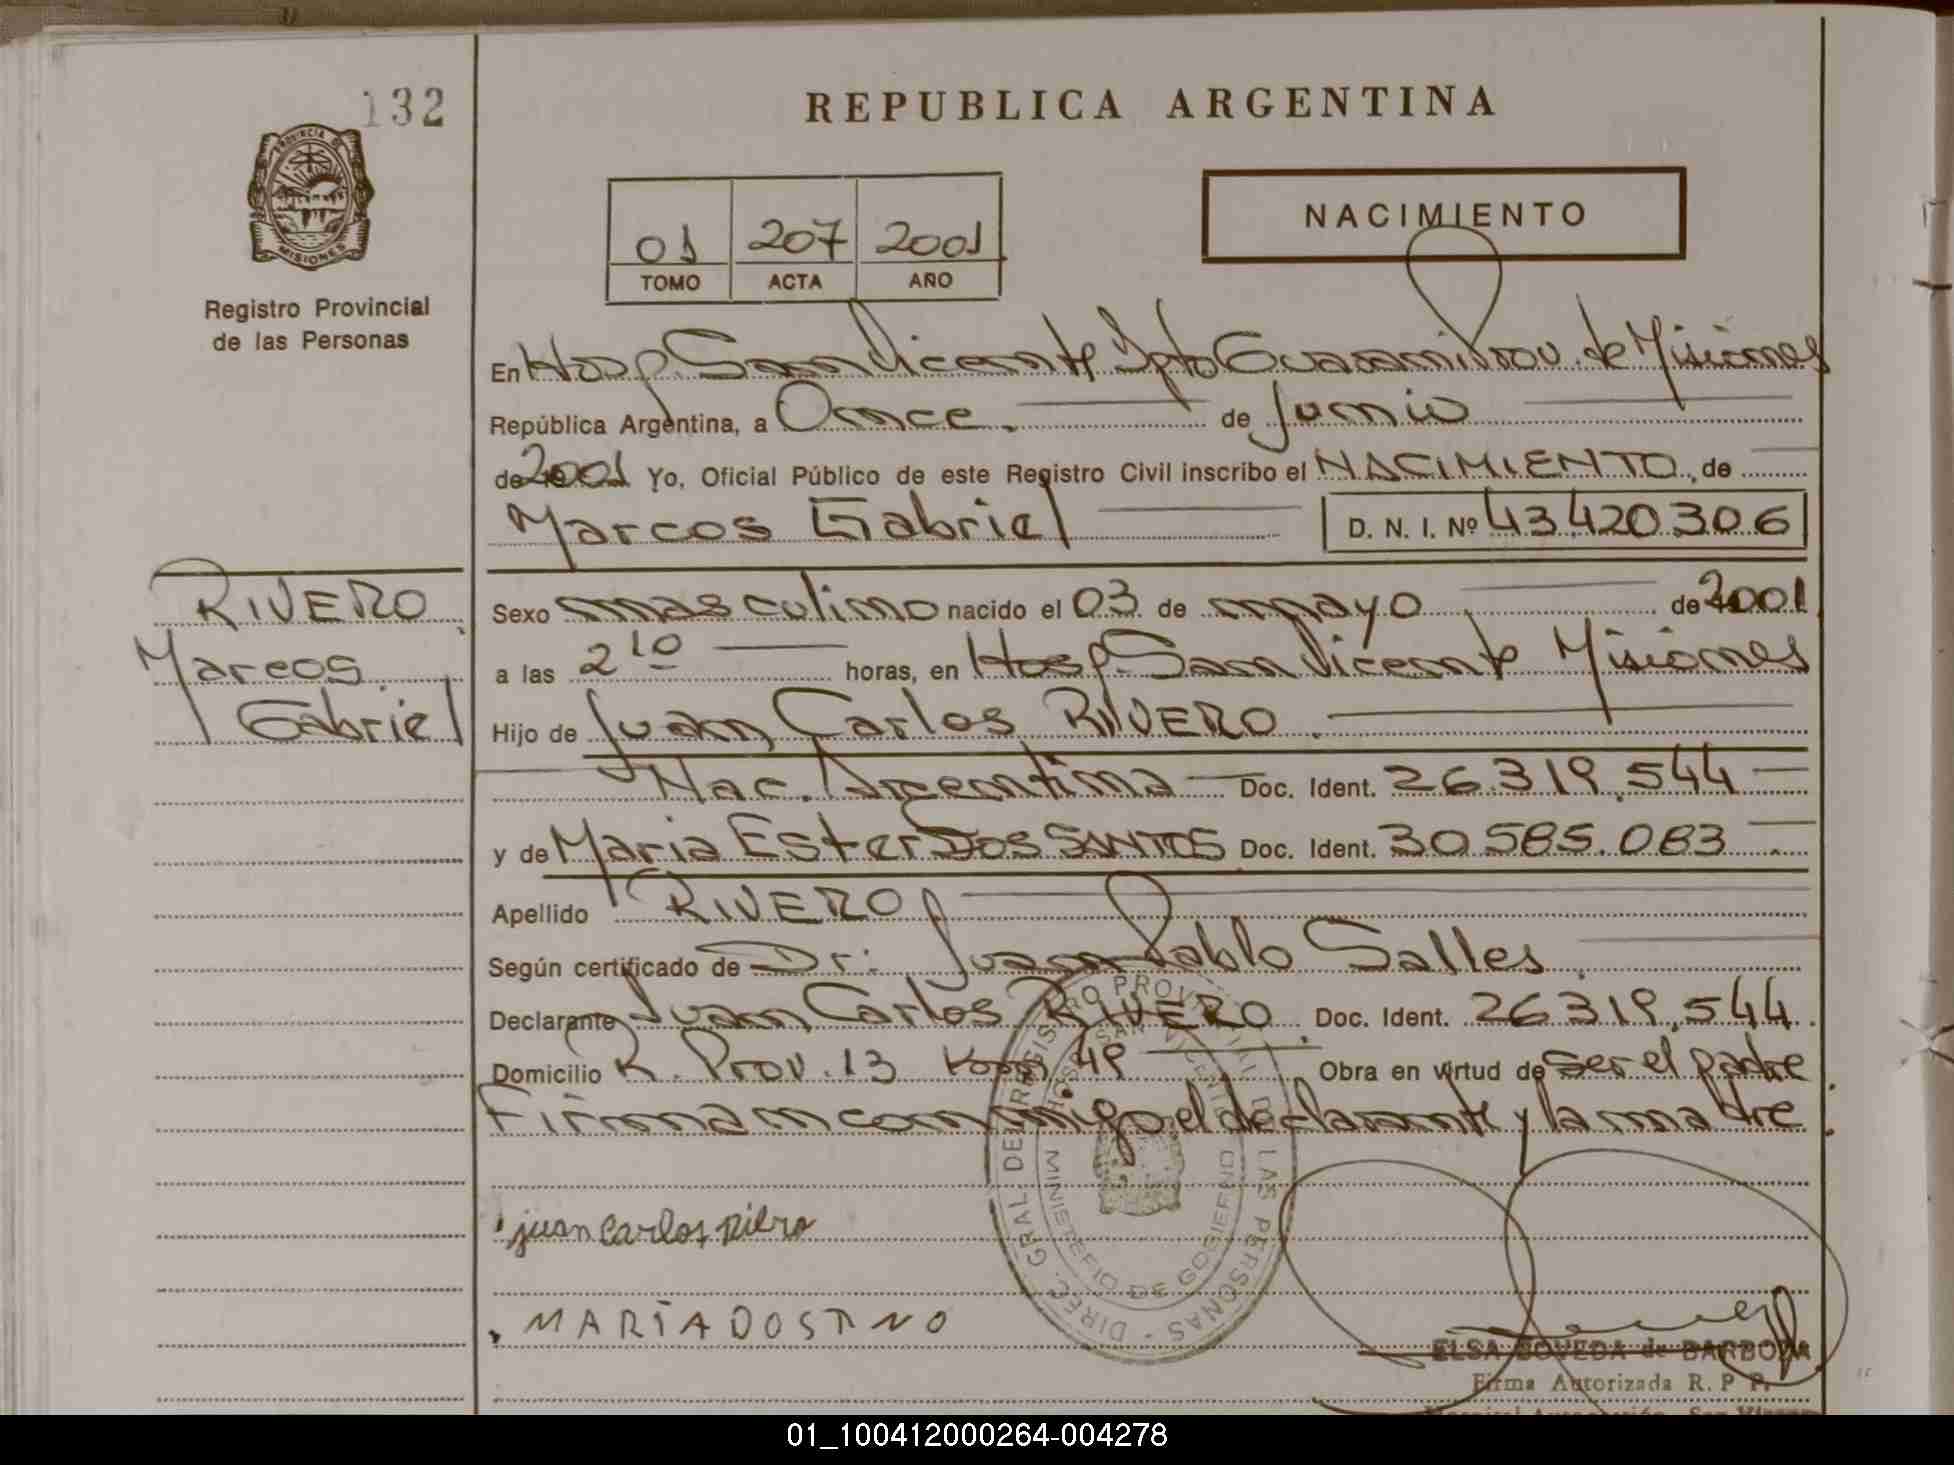 132
REPUBLICA ARGENTINA
PROVINCIA DE
MISIONES
Registro Provincial
de las Personas
01 207 2001
TOMO ACTA AÑO
NACIMIENTO
En Hosp. San Vicente Dpto Guarani Prov. de Misiones
República Argentina, a Once. de Junio
de 2001 Yo, Oficial Público de este Registro Civil inscribo el NACIMIENTO, de
Marcos Gabriel D. N. I. Nº 43.420.306
RIVERO
Marcos
Gabriel
Sexo masculino nacido el 03 de mayo de 2001
a las 2 10 horas, en Hosp. San Vicente Misiones
Hijo de Juan Carlos RIVERO.
Nac. Argentina Doc. Ident. 26.319.544
y de Maria Ester DOS SANTOS Doc. Ident. 30.585.083
Apellido RIVERO
Según certificado de Dr: Juan Pablo Salles
Declarante Juan Carlos RIVERO. Doc. Ident. 26.319.544
Domicilio R. Prov. 13 Km 49 Obra en virtud de ser el padre
Firman conmigo el declarante y la madre.
DIREC. GRAL. DEL REGISTRO PROVINCIAL DE LAS PERSONAS
HOSP. SAN VICENTE
MINISTERIO DE GOBIERNO
juan carlos
MARIA DOS
ELSA BOVEDA de BARBOZA
Firma Autorizada R. P. P.
01_100412000264-004278